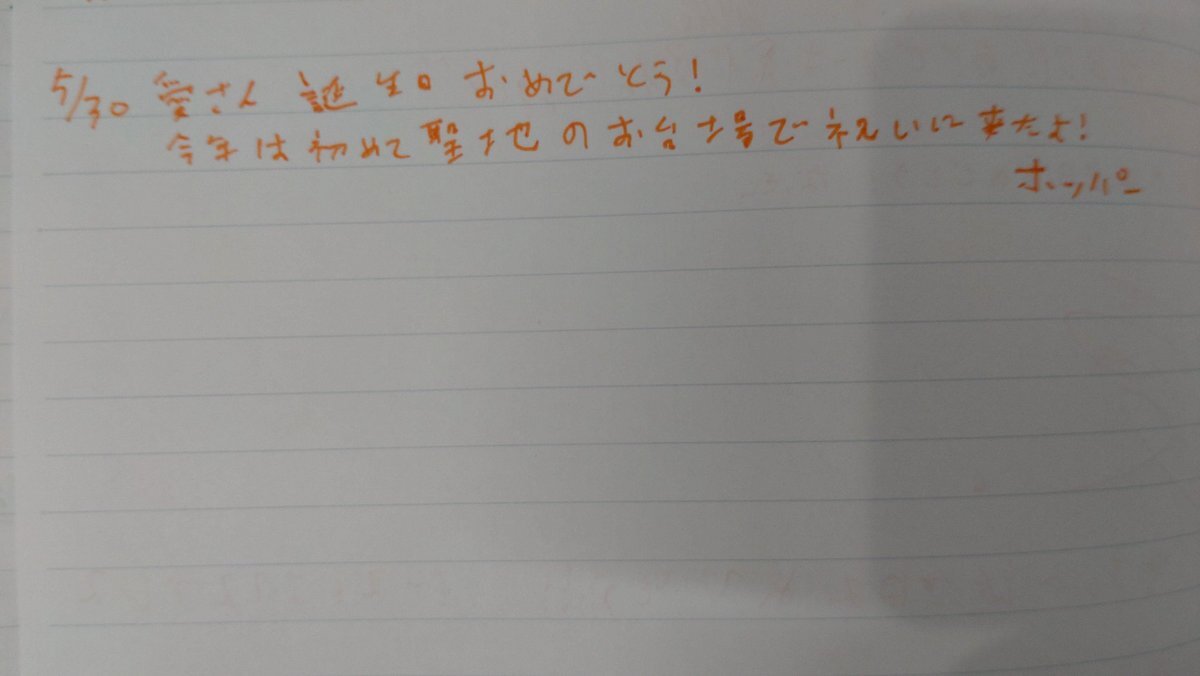 5/30 愛さん 誕生日 おめでとう!
今年は初めて聖地のお台場でネえいに来たよ!
ホッパー